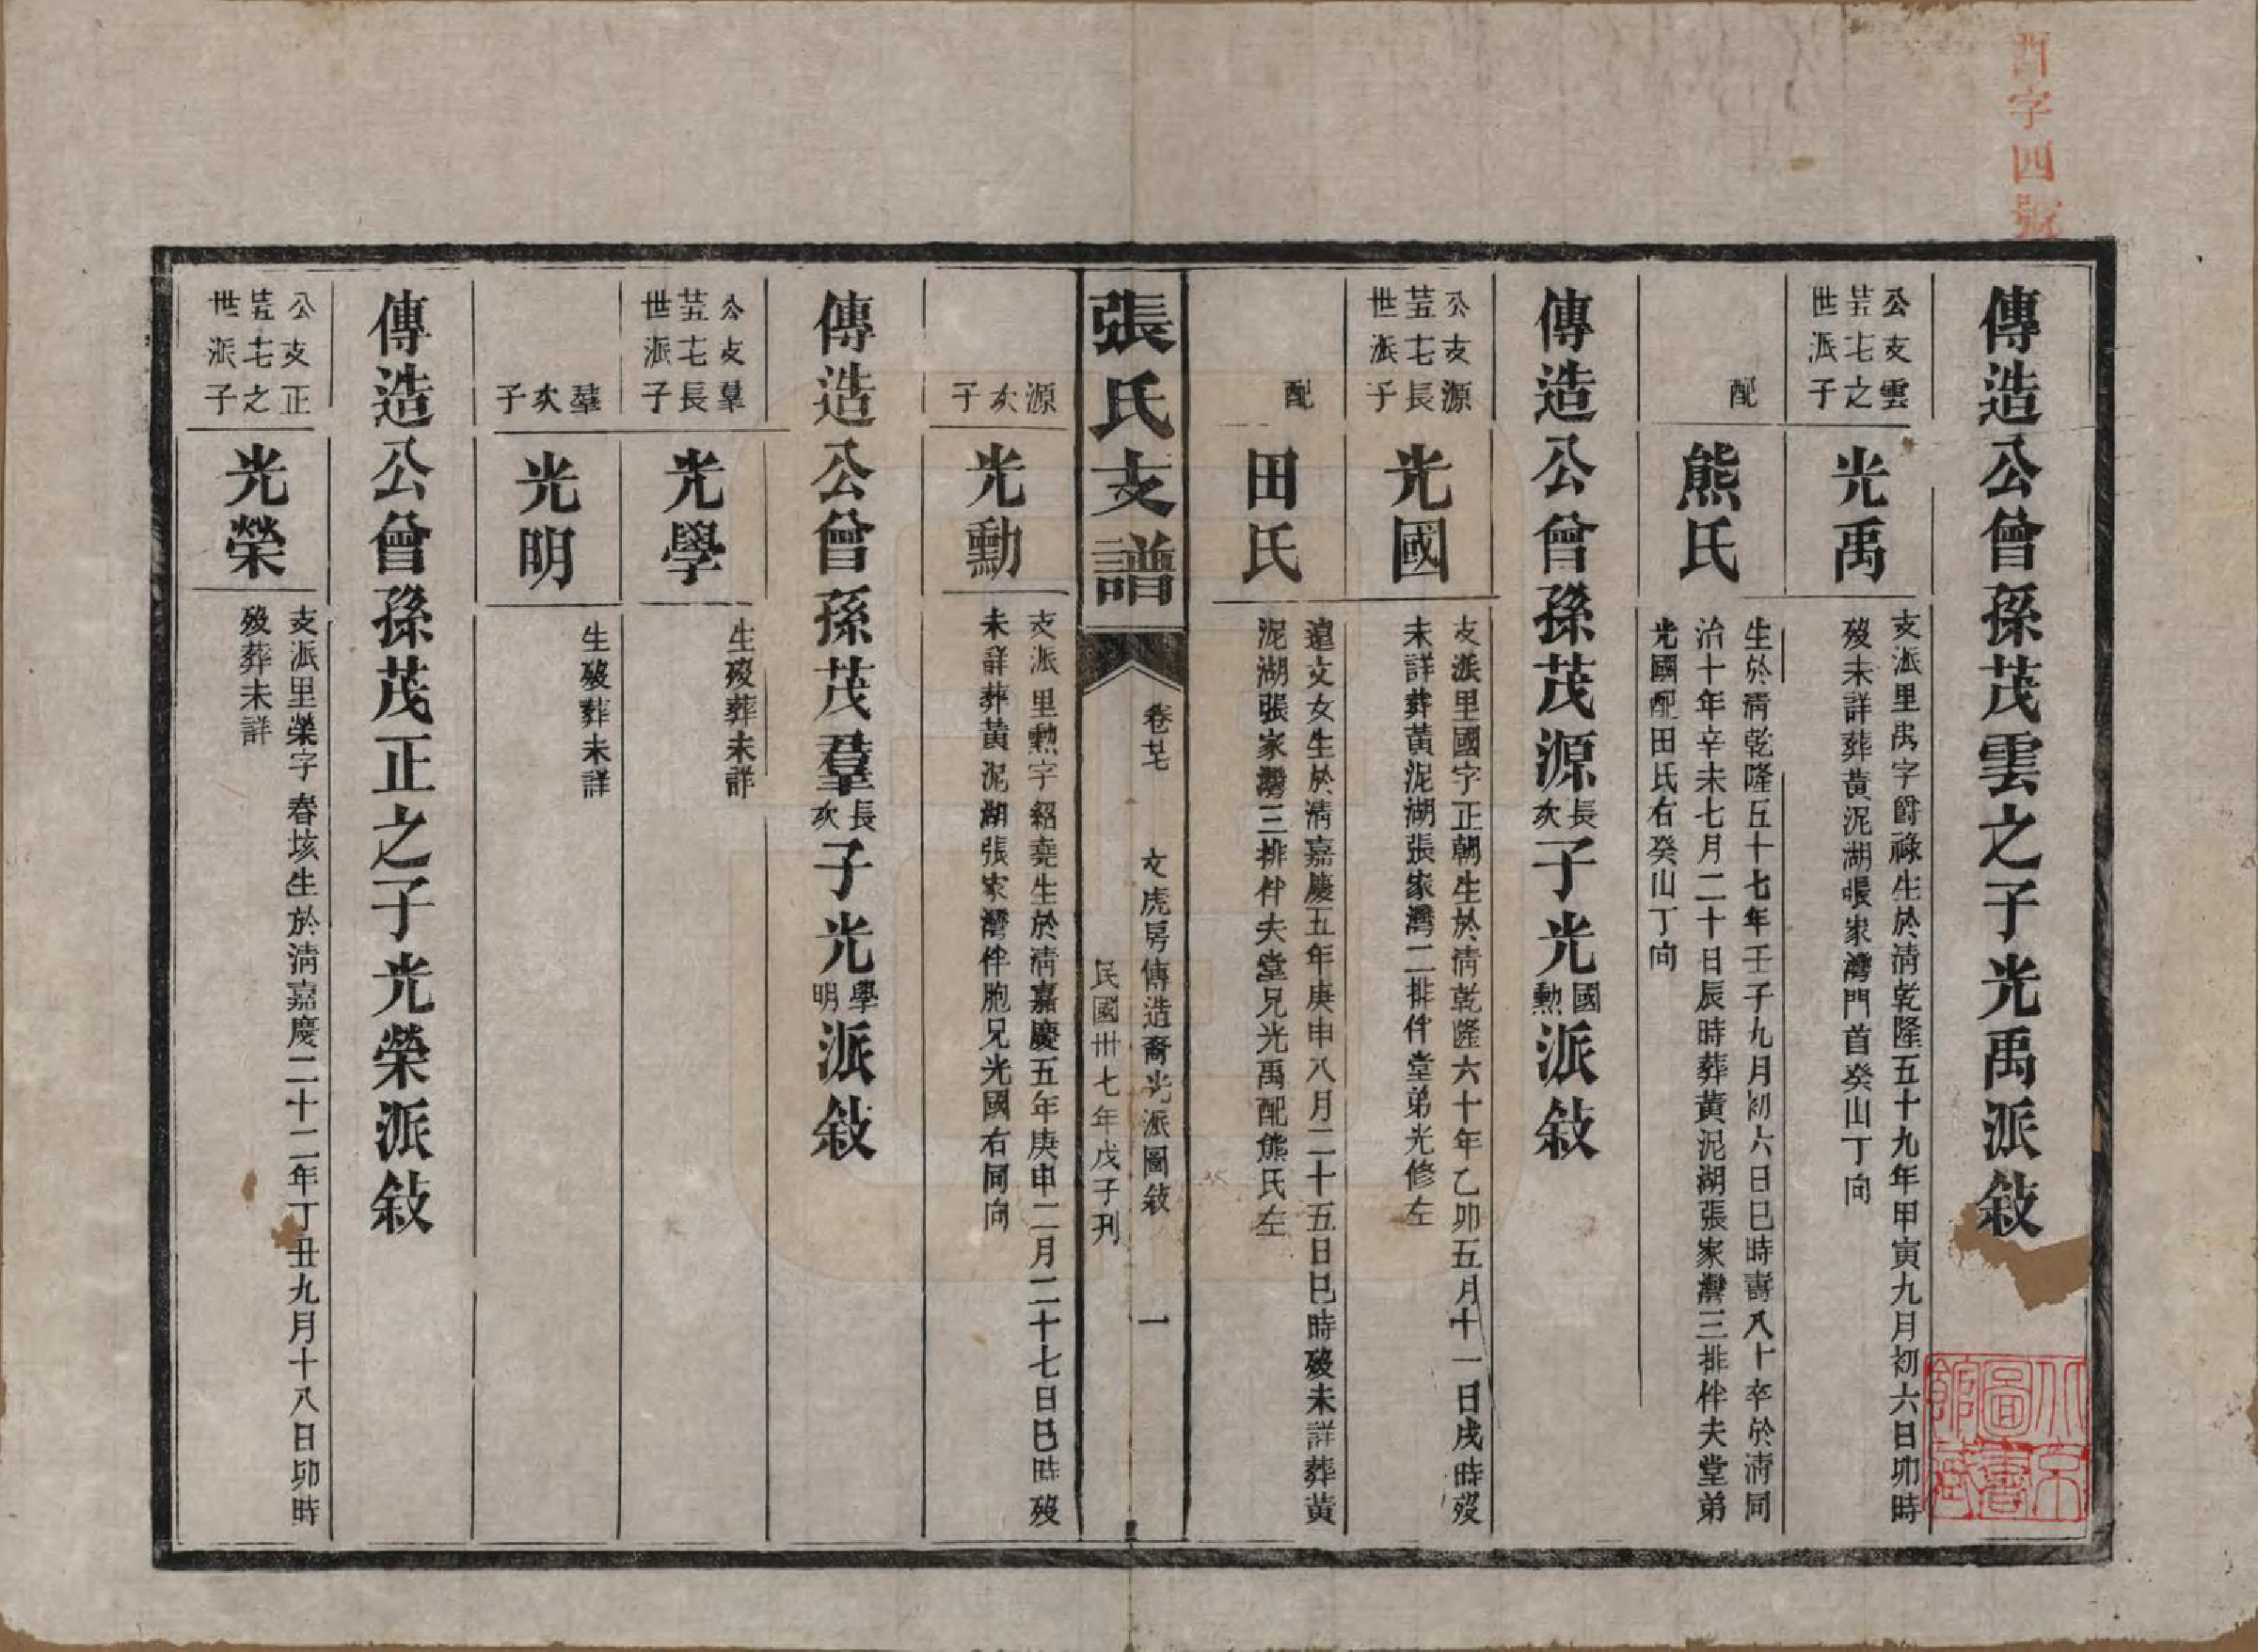 酉字四號
傳造公曾孫茂雲之子光禹派敍
公支雲
廿五七之
世派子
光禹
支派里禹字爵祿生於清乾隆五十九年甲寅九月初六日卯時
歿未詳葬黃泥湖張家灣門首癸山丁向
配
熊氏
生於清乾隆五十七年壬子九月初六日巳時壽八十卒於清同
治十年辛未七月二十日辰時葬黃泥湖張家灣三排伴夫堂弟
光國配田氏右癸山丁向
傳造公曾孫茂源長次子光國勲派敍
公支源
廿五七長
世派子
光國
支派里國字正朝生於清乾隆六十年乙卯五月十一日戌時歿
未詳葬黃泥湖張家灣二排伴堂弟光修左
配
田氏
遠文女生於清嘉慶五年庚申八月二十五日巳時歿未詳葬黃
泥湖張家灣三排伴夫堂兄光禹配熊氏左
張氏支譜
卷廿七 文虎房傳造裔光派圖敍 一
民國卅七年戊子刊
源次子
光勳
支派里勲字紹堯生於清嘉慶五年庚申二月二十七日巳時歿
未詳葬黃泥湖張家灣伴胞兄光國右同向
傳造公曾孫茂羣長次子光學明派敍
公支羣
廿五七長
世派子
光學
生歿葬未詳
羣次子
光明
生歿葬未詳
傳造公曾孫茂正之子光榮派敍
公支正
廿五七之
世派子
光榮
支派里榮字春垓生於清嘉慶二十二年丁丑九月十八日卯時
歿葬未詳
北京圖書館藏